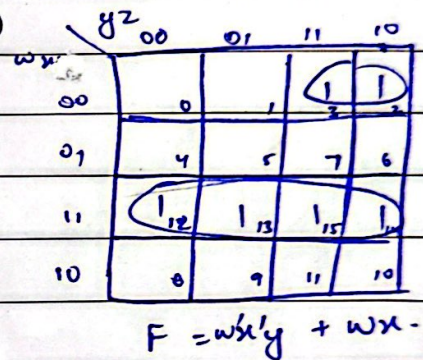 )
yz
00 01 11 10
wx
00 0 1 1 3 1 2
01 4 5 7 6
11 1 12 1 13 1 15 1 14
10 8 9 11 10
F = w'x'y + wx.